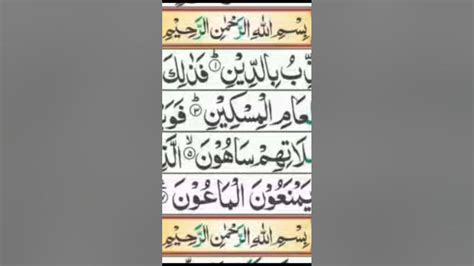 بِسْمِ اللّٰهِ الرَّحْمٰنِ الرَّحِيْمِ
ذِّبُ بِالدِّيْنِ ۝١ فَذٰلِكَ
عَامِ الْمِسْكِيْنِ ۝٣ فَوَيْ
لَاتِهِمْ سَاهُوْنَ ۝٥ الَّذِ
يَمْنَعُوْنَ الْمَاعُوْنَ ۝٧
بِسْمِ اللّٰهِ الرَّحْمٰنِ الرَّحِيْمِ